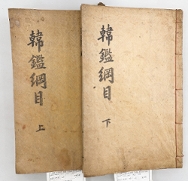 韓鑑綱目
下
韓鑑綱目
上